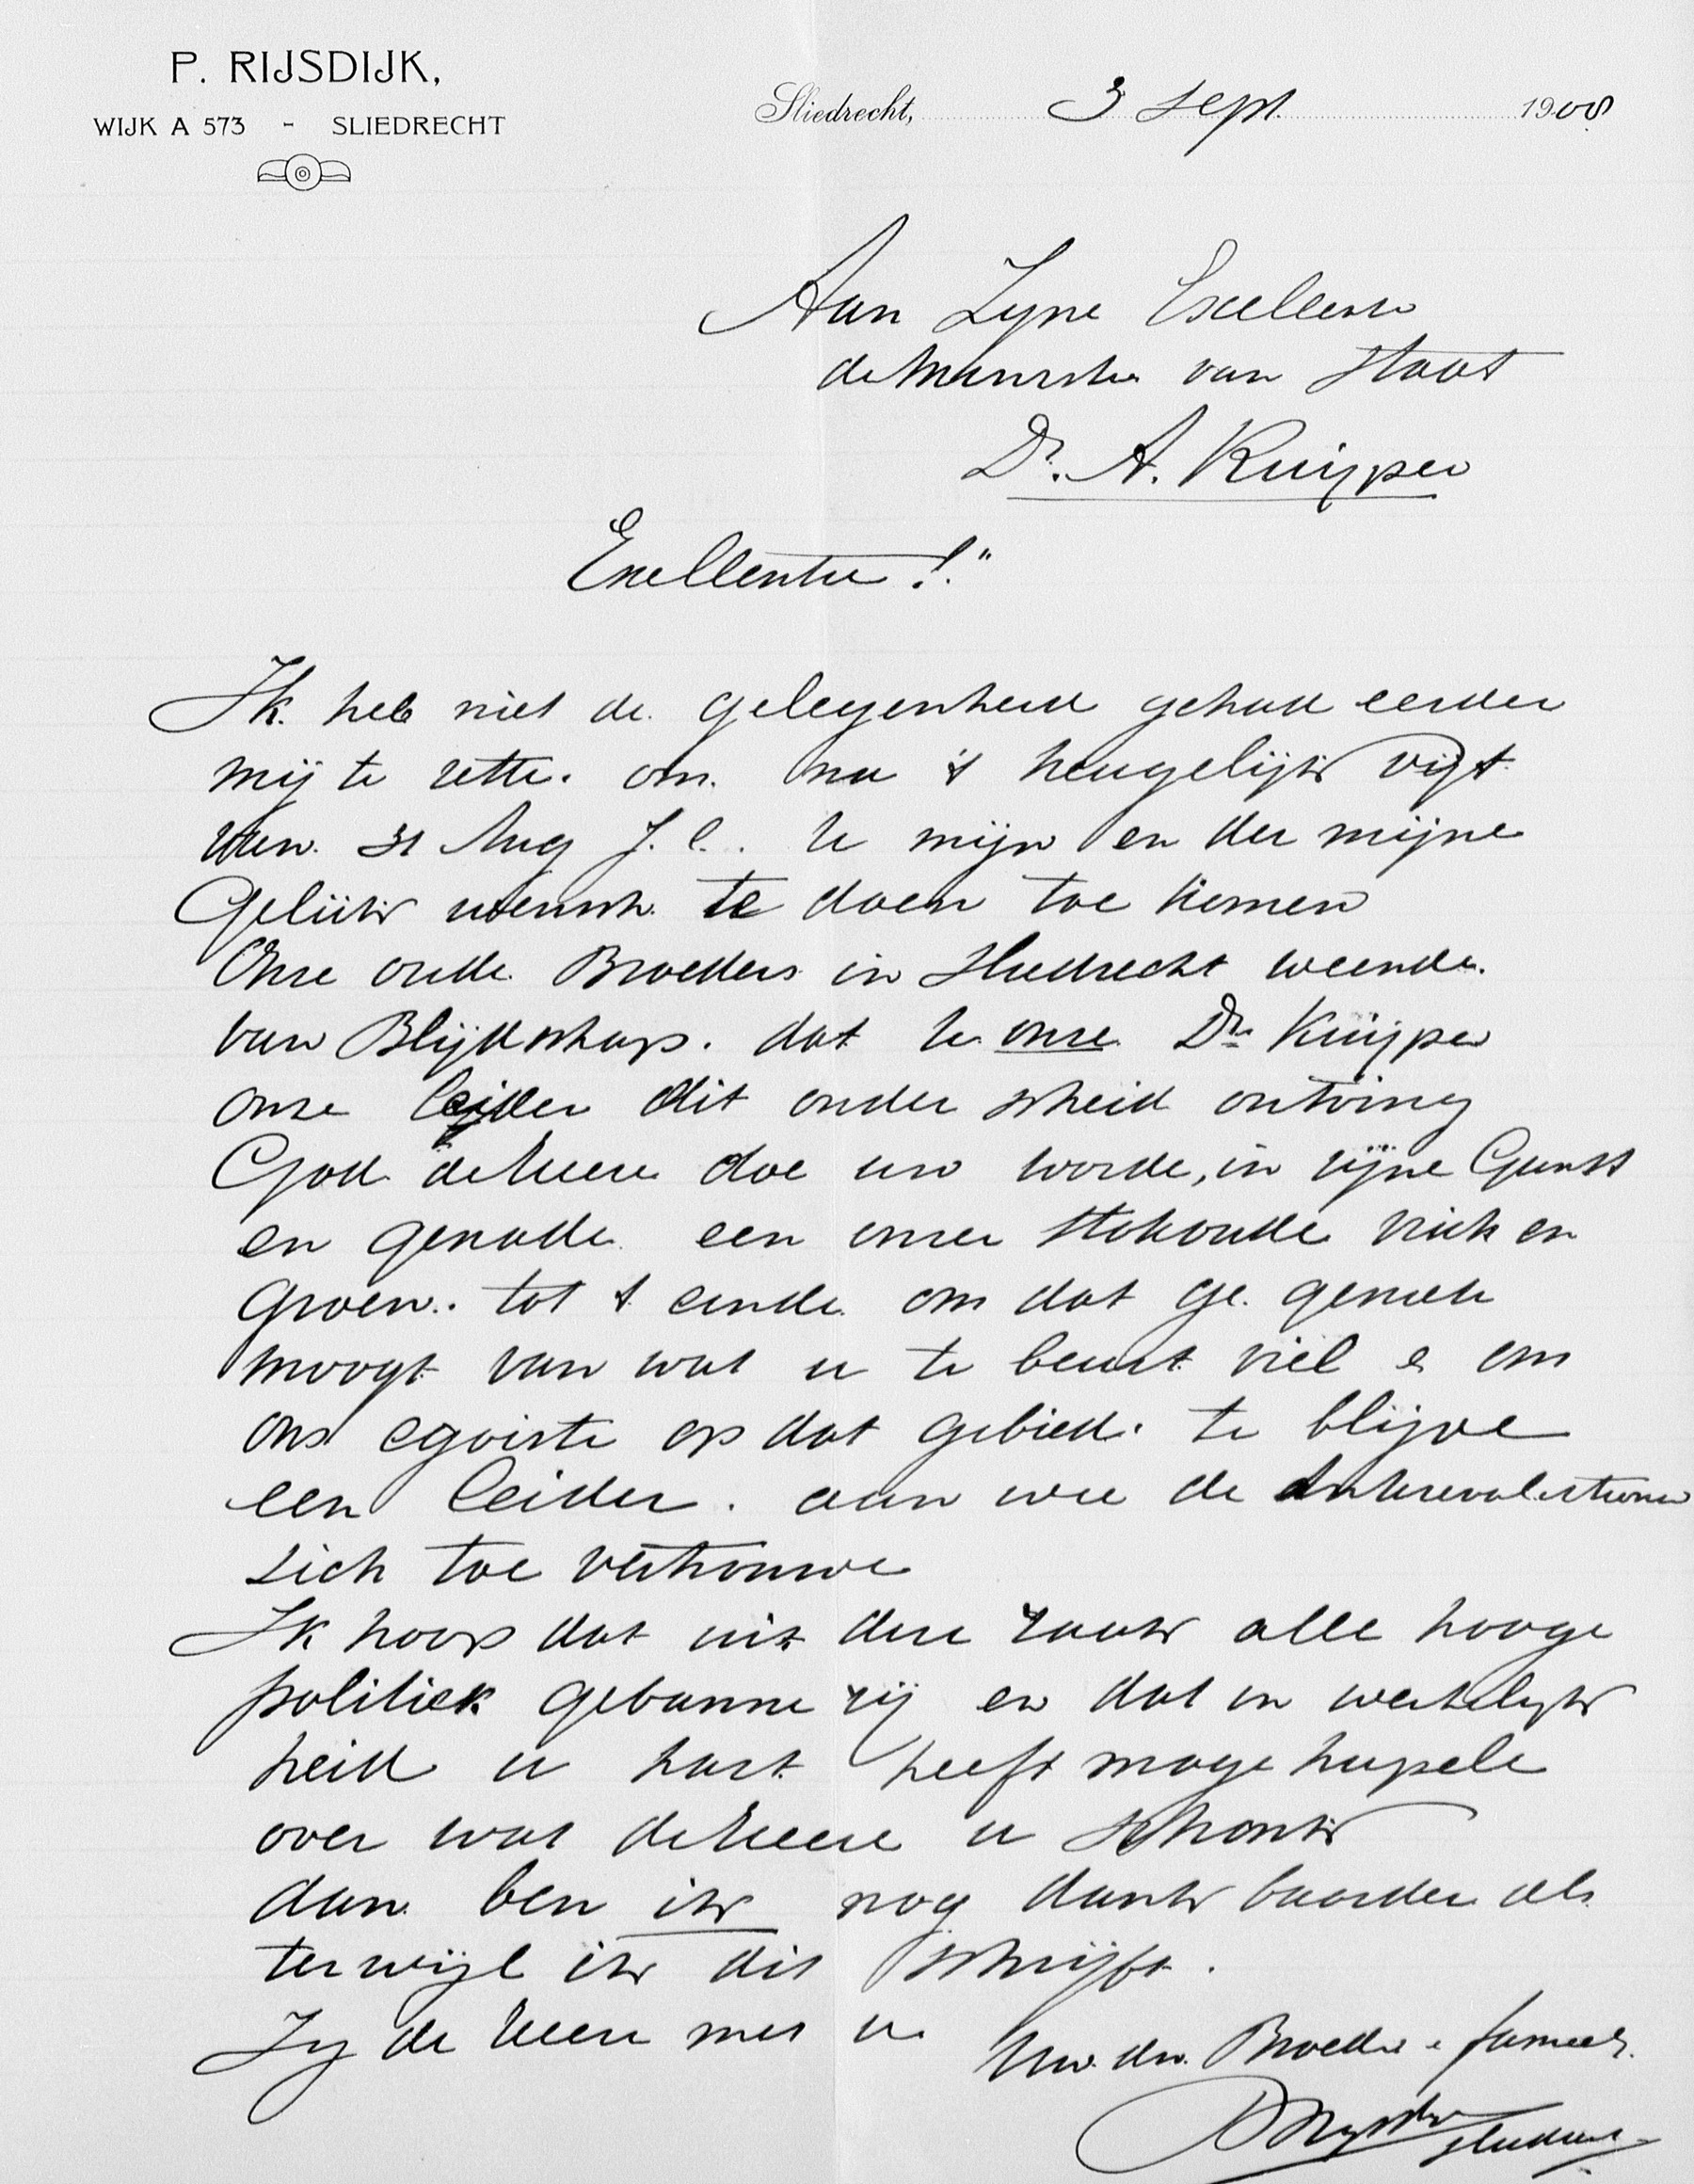 P. RIJSDIJK,
WIJK A 573 - SLIEDRECHT
Sliedrecht, 3 Sept. 1908
Aan Zyne Excellentie
de Minister van Staat
Dr. A. Kuijper
Exellentie!"
Ik heb niet de gelegenheid gehad eerder
mij te zette. om na 't heugelijk
van 31 Aug j.l. U mijn en der mijne
Geluk wensch te doen toe komen
Onze oude Broeders in Sliedrecht weende.
van Blijdschap. dat U onze Dr Kuijper
onze leider dit onder scheid ontving
God de Heere doe uw worde, in zijne Gunst
en genade een onzer stokoude
Groen. tot 't einde om dat ge. geniete
moogt van wat u te beurt viel & om
ons egoiste op dat gebied. te blijve
een leider. aan wie de Antirevolutionair
zich toe vertrouwe
Ik hoop dat uit deze zaak alle hooge
politiek gebanne zij en dat in werkelijk
heid u hart heeft moge huppele
over wat de Heere u schonk
dan ben ik nog dank baarder als
terwijl ik dit schrijft.
Zy de Heere met u
Uw. dw. Broeder
Sliedrecht